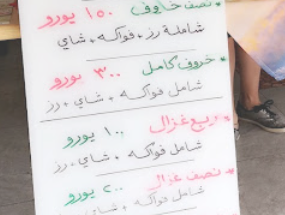 نصف خاروف ١٥٠ يورو
شاملة رز + فواكه + شاي
خروف كامل ٣٠٠ يورو
شامل فواكه + شاي + رز
ربع غزال ١٠٠ يورو
شامل فواكه + شاي + رز
نصف غزال ٢٠٠ يورو
شامل فواكه + شاي